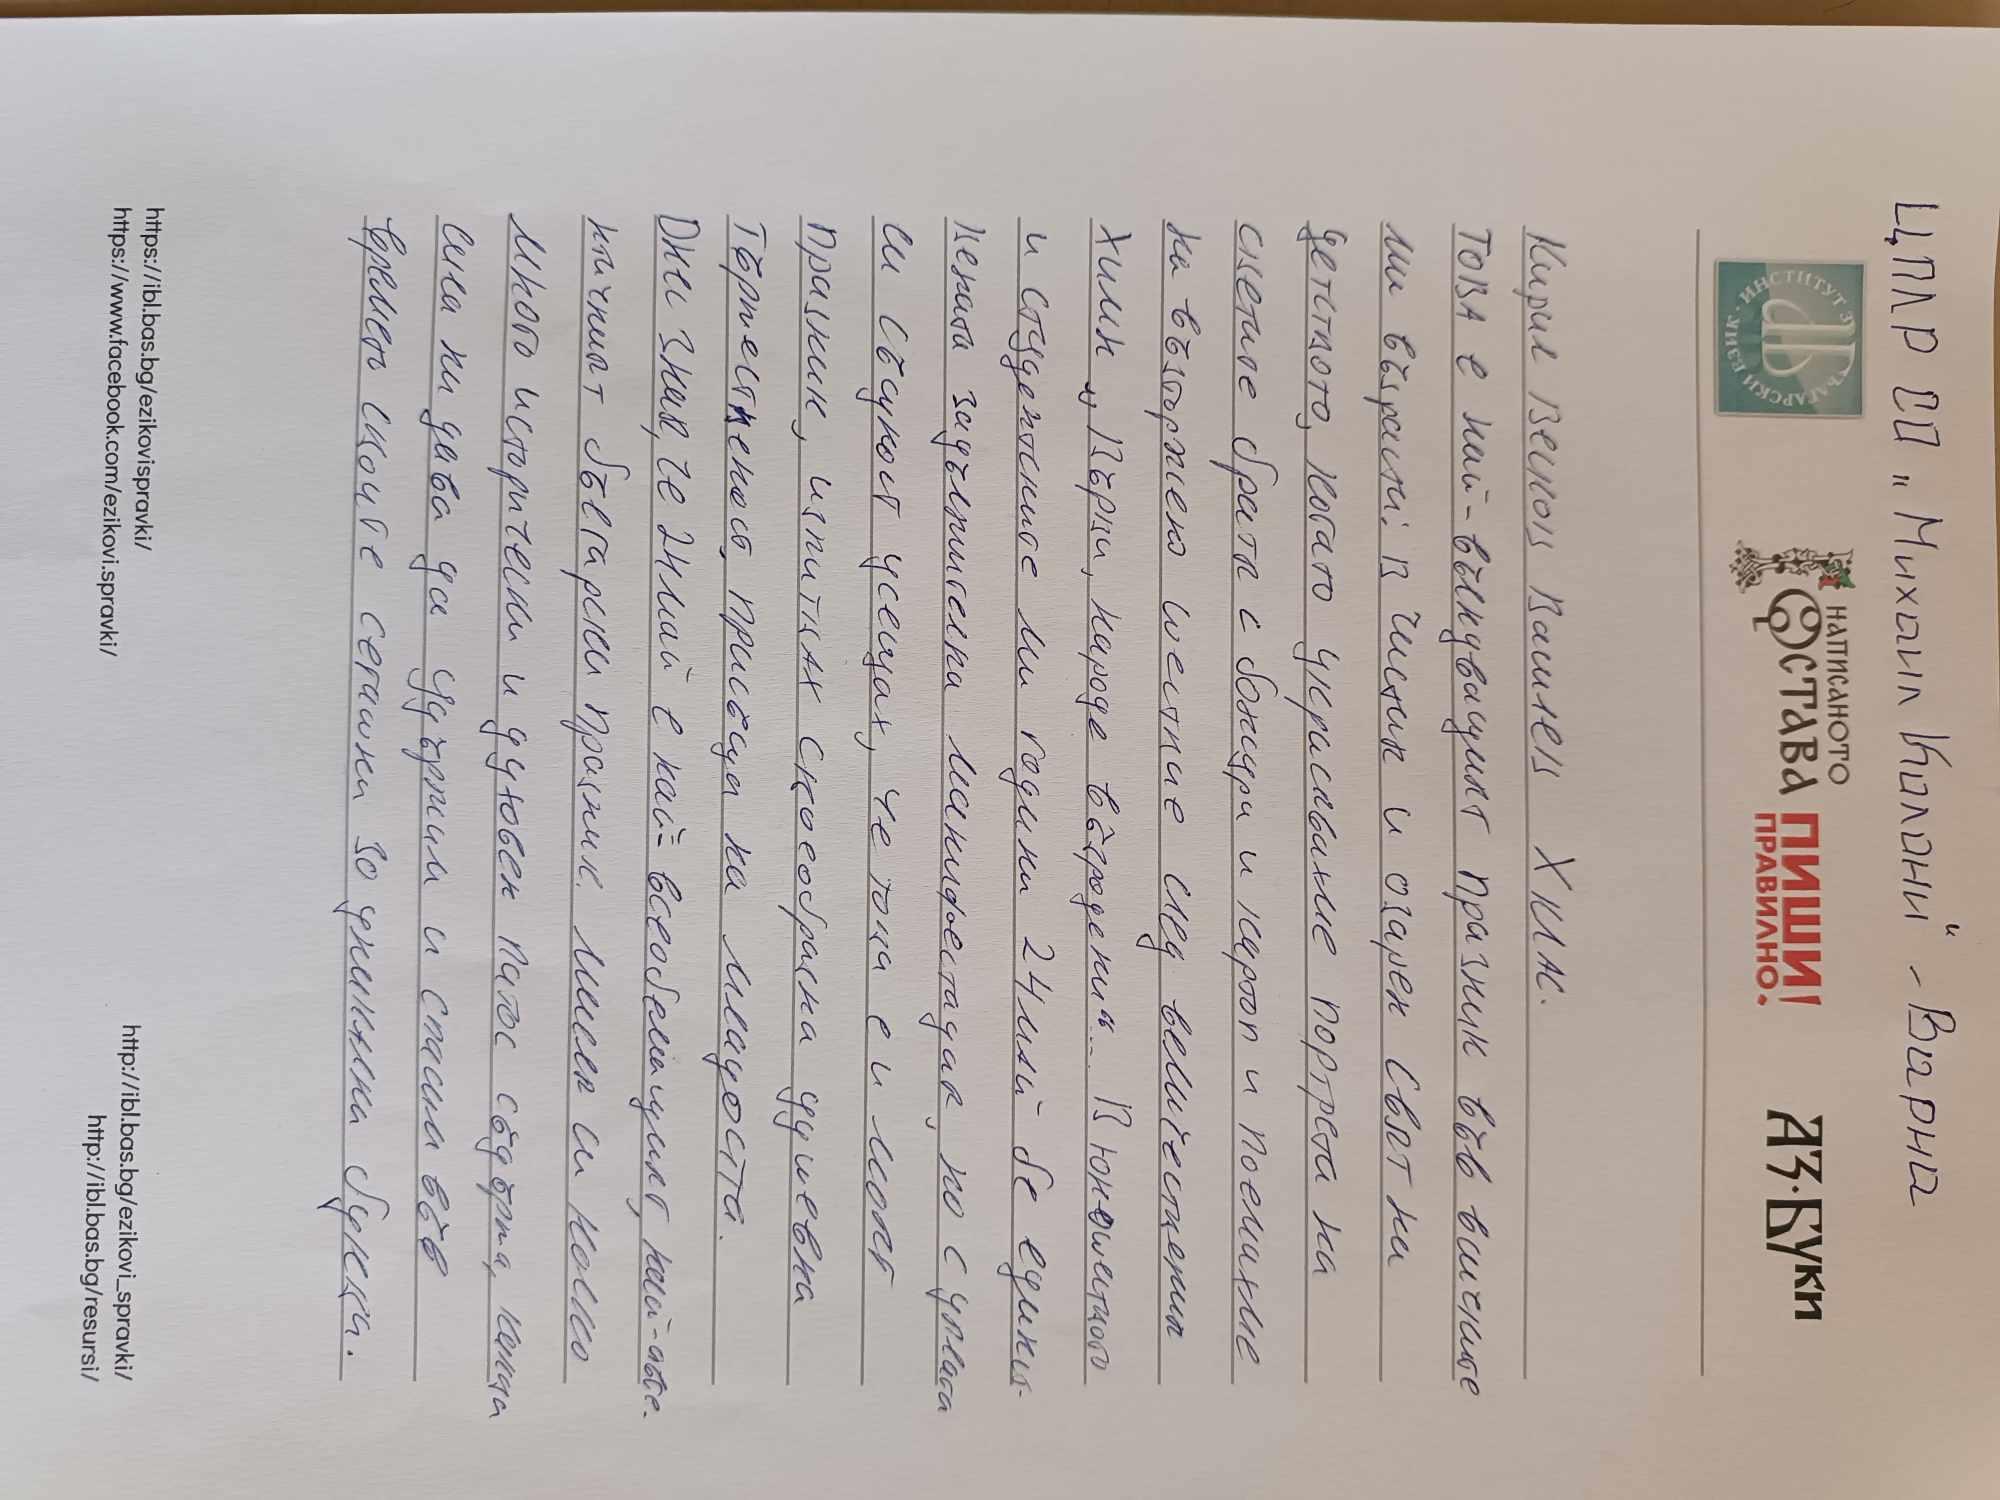 ЦПЛР ОП „Михаил Колони" - Варна
ИНСТИТУТ ЗА БЪЛГАРСКИ ЕЗИК
НАПИСАНОТО
ОСТАВА
ПИШИ
ПРАВИЛНО!
АЗ·БУКИ
Кирил Веско Василев X клас.
Това е най-вълнуващият празник във всичките
ми възрасти. В чистия и озарен свят на
детството, когато украсявахме портрета на
светите братя с божури и и поемахме
на възторжено шествие след величествения
химн „Върви, народе възродени"... В юношеското
и студентските ми години 24 май бе единст-
вената задължителна манифестация, но с упласа
си същност усещах, че това е и моят
празник, изпитвах своеобразна душевна
тържественост, присъща на младостта.
Днес зная, че 24 май е най-всеобемащият, най-все-
личният български празник. Имен си колко
много исторически и духовен патос съдържа, каква
сила ни дава да издържим и спасим във
времето своите сегашни за единични букви.
https://ibl.bas.bg/ezikovispravki/
https://www.facebook.com/ezikovi.spravki/
http://ibl.bas.bg/ezikovi_spravki/
http://ibl.bas.bg/resursi/